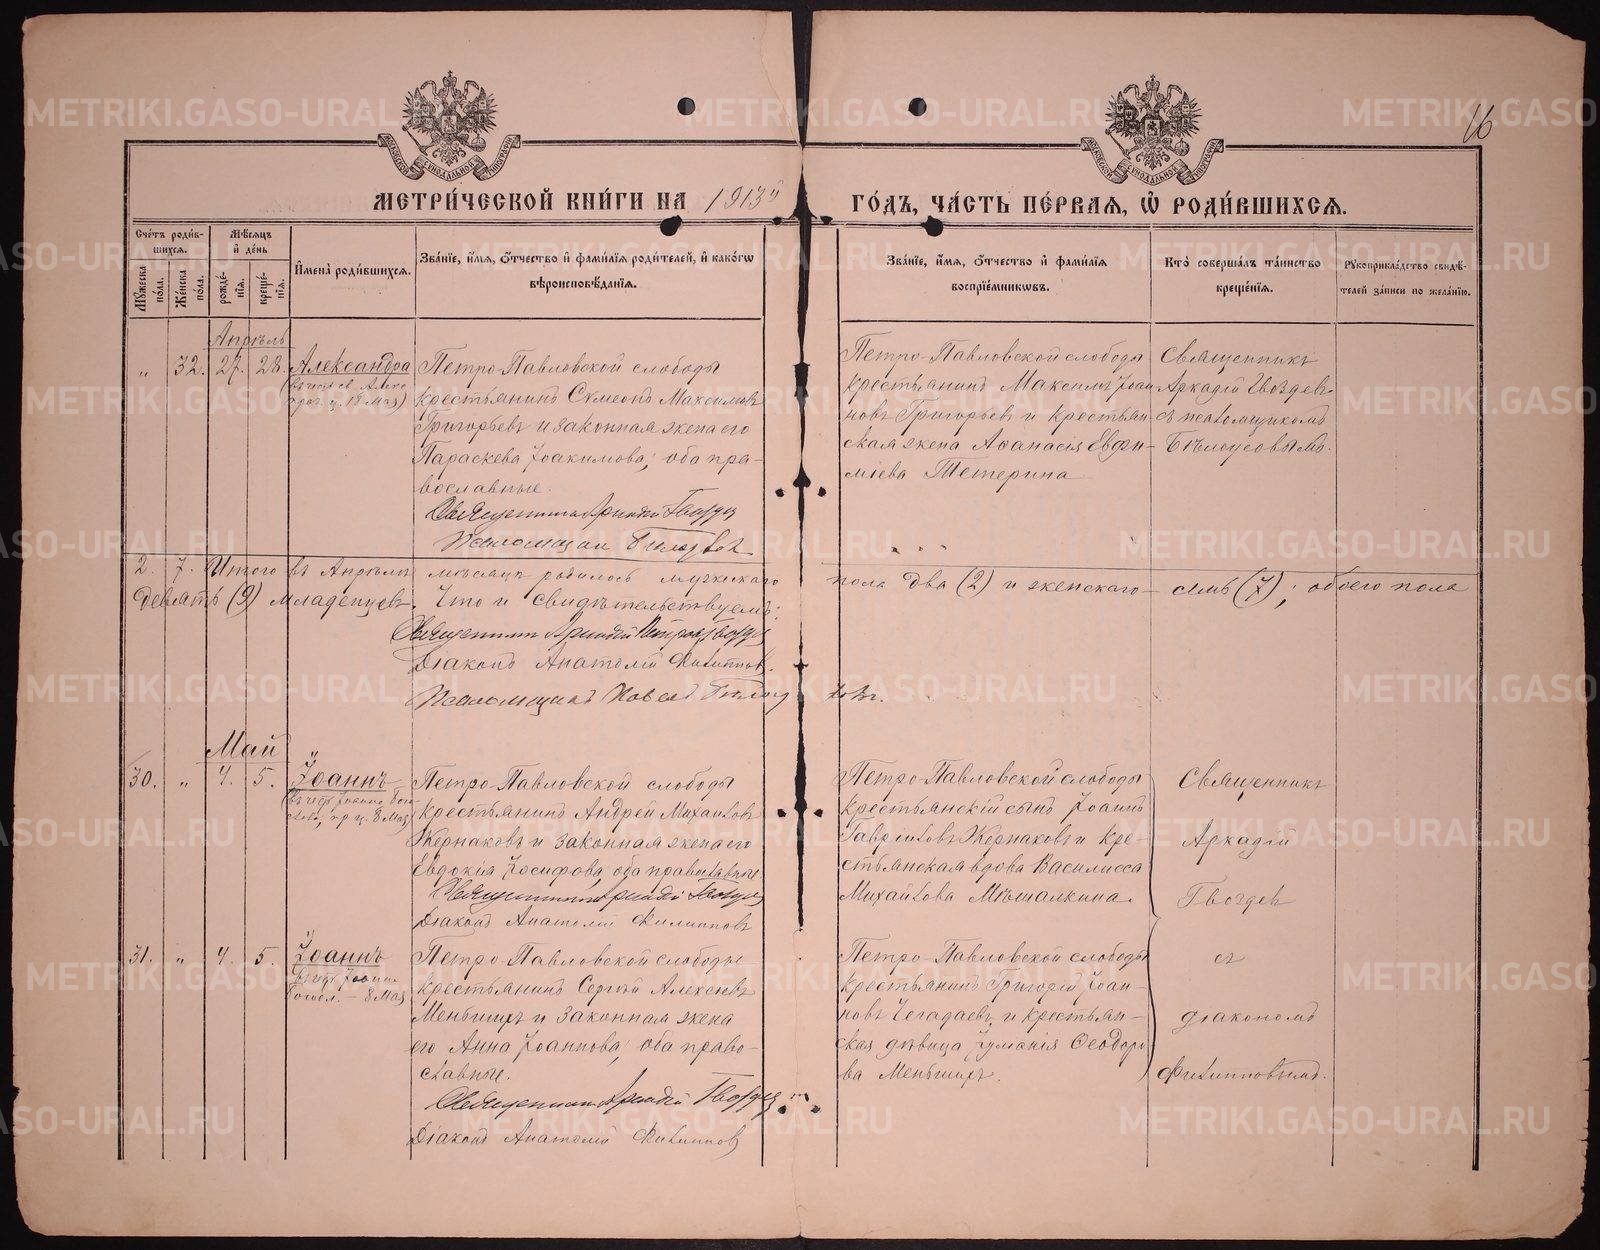 16
МЕТРИ́ЧЕСКОЙ КНИ́ГИ НА 1913й ГО́ДЪ, ЧА́СТЬ ПЕ́РВАЯ, Ѡ РОДИ́ВШИХСЯ.
Сче́тъ роди́в-
шихся.
Му́жеска по́ла.
Же́нска по́ла.
Мѣ́сяцъ
и де́нь
рожде́-
нія.
креще́-
нія.
Имена̀ роди́вшихся.
Зва́ніе, и́мя, о́тчество и фами́лія роди́телей, и како́гѡ
вѣроисповѣ́данія.
Зва́ніе, и́мя, о́тчество и фами́лія
воспріе́мниковъ.
Кто̀ соверша́лъ та́инство
креще́нія.
Рукоприкла́дство свидѣ́-
телей за́писи по жела́нію.
Апрѣль
" 32. 27. 28. Александра
Петро-Павловской слободы
крестьянинъ Сѵмеонъ Максимовъ
Григорьевъ и законная жена его
Параскева Іоакимова; оба пра-
вославные.
Священникъ Аркадій Гвоздевъ
Псаломщикъ
Петро-Павловской слободы
крестьянинъ Максимъ Іоан
новъ Григорьевъ и крестьян-
ская жена Аѳанасія Евѳи-
міева Тетерина
Священникъ
Аркадій Гвоздевъ
съ псаломщикомъ
Бѣлоусовымъ.
2. 7. Итого въ Апрѣлѣ мѣсяцѣ родилось мужескаго пола два (2) и женскаго — семь (7); обоего пола
девять (9) младенцевъ. Что и свидѣтельствуемъ:
Священникъ Аркадій Петровъ Гвоздевъ
Діаконъ Анатолій Филипповъ.
Псаломщикъ Павелъ Бѣлоусовъ.
Май
30. " 4. 5. Іоаннъ
Петро-Павловской слободы
крестьянинъ Андрей Михаиловъ
Жернаковъ и законная жена его
Евдокія Іосифова, оба православные
Священникъ Аркадій Гвоздевъ
Діаконъ Анатолій Филипповъ
Петро-Павловской слободы
крестьянскій сынъ Іоаннъ
Гавріиловъ Жернаковъ и кре-
стьянская вдова Василисса
Михаилова Мѣшалкина.
Священникъ
Аркадій
Гвоздев
31. " 4. 5. Іоаннъ
Петро-Павловской слободы
крестьянинъ Сергій Алексѣевъ
Меньшихъ и законная жена
его Анна Іоаннова; оба право-
славные.
Священникъ Аркадій Гвоздевъ
Діаконъ Анатолій Филипповъ
Петро-Павловской слободы
крестьянинъ Григорій Іоан-
новъ Чегадаевъ и крестьян-
ская дѣвица Іуманія Ѳеодоро
ва Меньшихъ.
съ
діакономъ
Филипповымъ.
METRIKI.GASO-URAL.RU